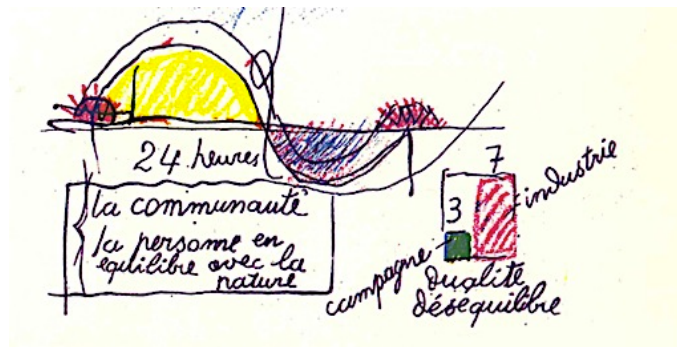 24 heures
la communauté
la personne en
equilibre avec la
nature
7
industrie
3
campagne
dualité
désequilibre